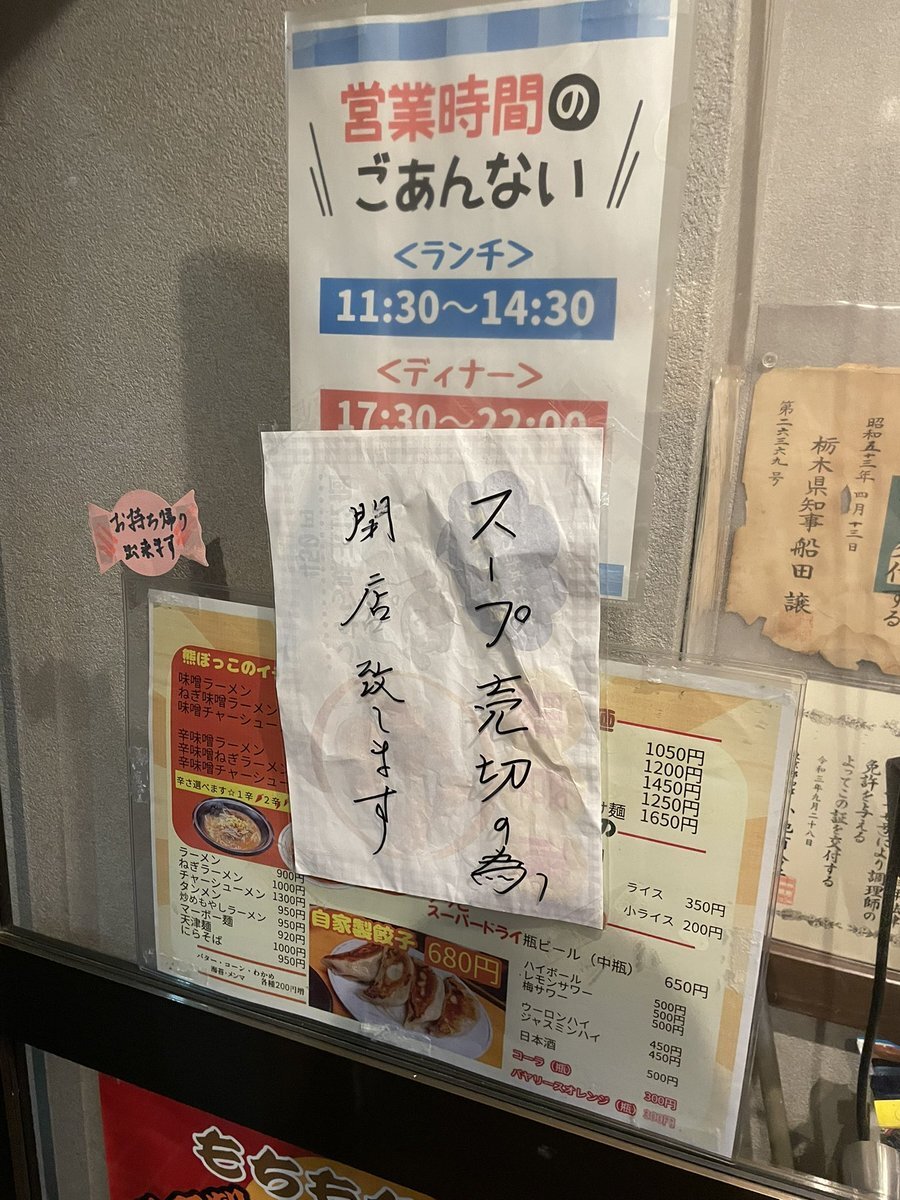 営業時間の
ごあんない
<ランチ>
11:30〜14:30
<ディナー>
17:30〜22:00
スープ売切の為、
閉店致します
お持ち帰り
出来ます
昭和五十三年四月十三日
栃木県知事 船田譲
第二六三六九号
熊ぼっこのイ
味噌ラーメン
ねぎ味噌ラーメン
味噌チャーシュー
辛味噌ラーメン
辛味噌ねぎラーメン
辛味噌チャーシュー
辛さ選べます☆1辛 2辛
ラーメン 900円
ねぎラーメン 1000円
チャーシューメン 1300円
タンメン 950円
炒めもやしラーメン 950円
マーボー麺 920円
天津麺 1000円
にらそば 950円
バター・コーン・わかめ
海苔・メンマ 各種200円増
1050円
1200円
1450円
1250円
け麺 1650円
ライス 350円
小ライス 200円
自家製餃子
680円
スーパードライ瓶ビール(中瓶) 650円
ハイボール 500円
レモンサワー 500円
梅サワー 500円
ウーロンハイ 450円
ジャスミンハイ 450円
日本酒 500円
コーラ(瓶) 300円
バヤリースオレンジ(瓶) 300円
により調理師の
免許を与える
よってこの証を交付する
令和三年九月二十八日
もちも